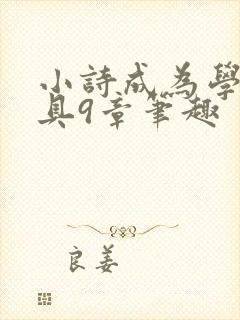 小詩成為學
具9章筆趣
良姜